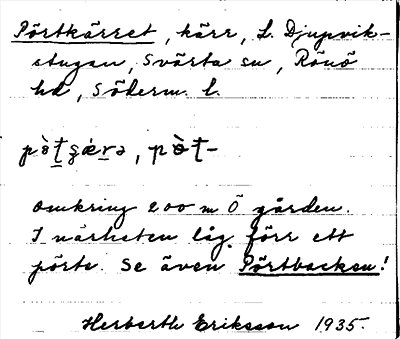 Pörtkärret, kärr, L. Djupvik-
stugan, Svärta sn, Rönö
hd, Söderm. l.
omkring 200 m Ö gården.
I närheten låg förr ett
pörte. Se även Pörtbacken!
Herbarth Eriksson 1935.